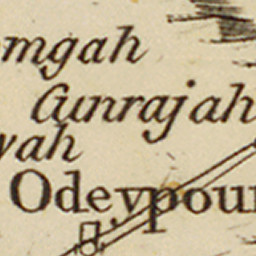 mgah
Cunrajah
vah
Odeypour